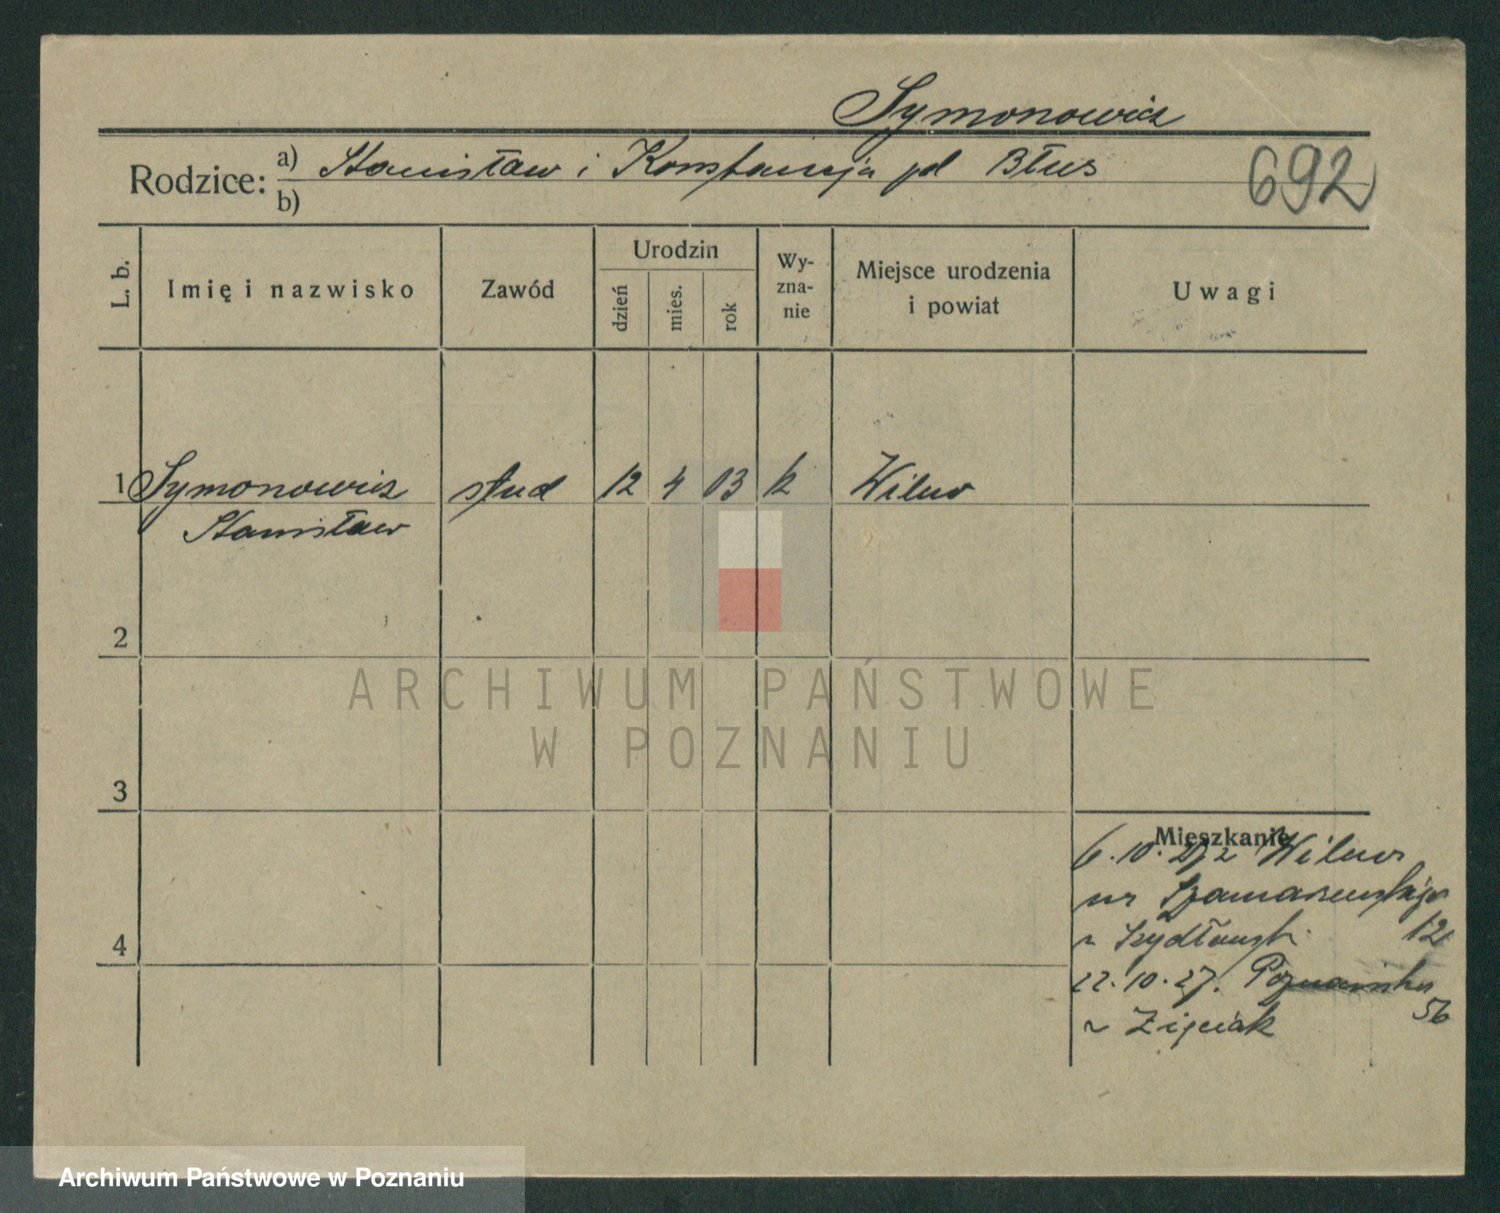 Symonowicz
Rodzice: a) Stanisław i Konstancja pd Błus
b)
692
L. b.
Imię i nazwisko
Zawód
Urodzin
dzień
mies.
rok
Wy-
zna-
nie
Miejsce urodzenia
i powiat
Uwagi
1 Symonowicz stud 12 4 03 k Wilno
Stanisław
2
3
4
Mieszkanie
6.10.27 z Wilno
Szamarzewskiego
12
22.10.27. Poznańska
56
Zięciak
ARCHIWUM PAŃSTWOWE
W POZNANIU
Archiwum Państwowe w Poznaniu